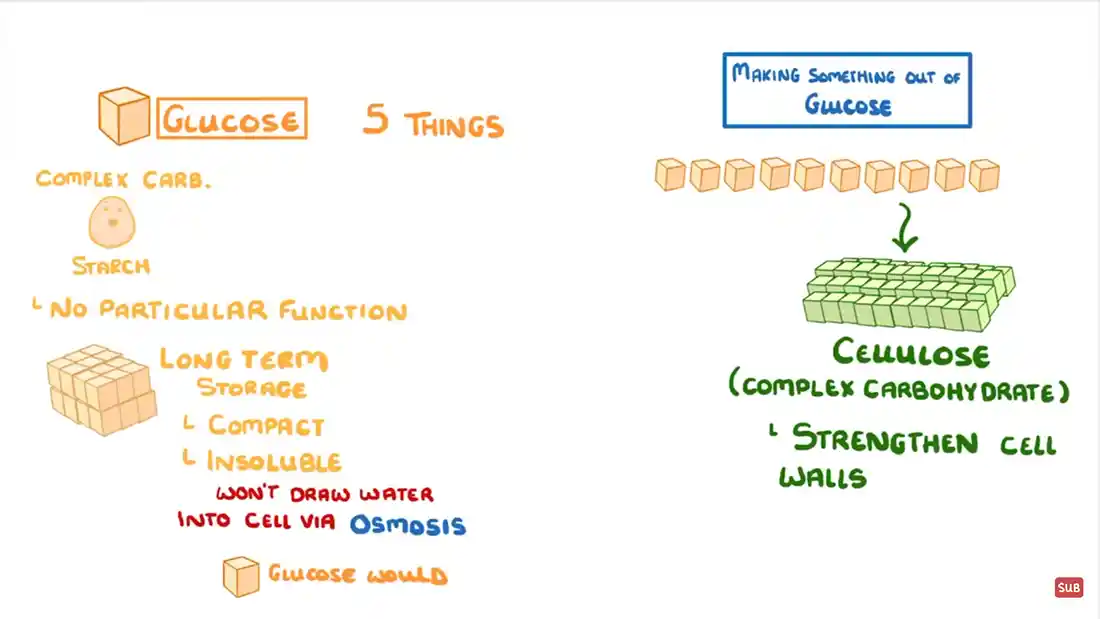 GLUCOSE
5 THINGS
COMPLEX CARB.
STARCH
└ NO PARTICULAR FUNCTION
LONG TERM
STORAGE
└ COMPACT
└ INSOLUBLE
WON'T DRAW WATER
INTO CELL VIA OSMOSIS
GLUCOSE WOULD
MAKING SOMETHING OUT OF
GLUCOSE
CELLULOSE
(COMPLEX CARBOHYDRATE)
└ STRENGTHEN CELL
WALLS
SUB